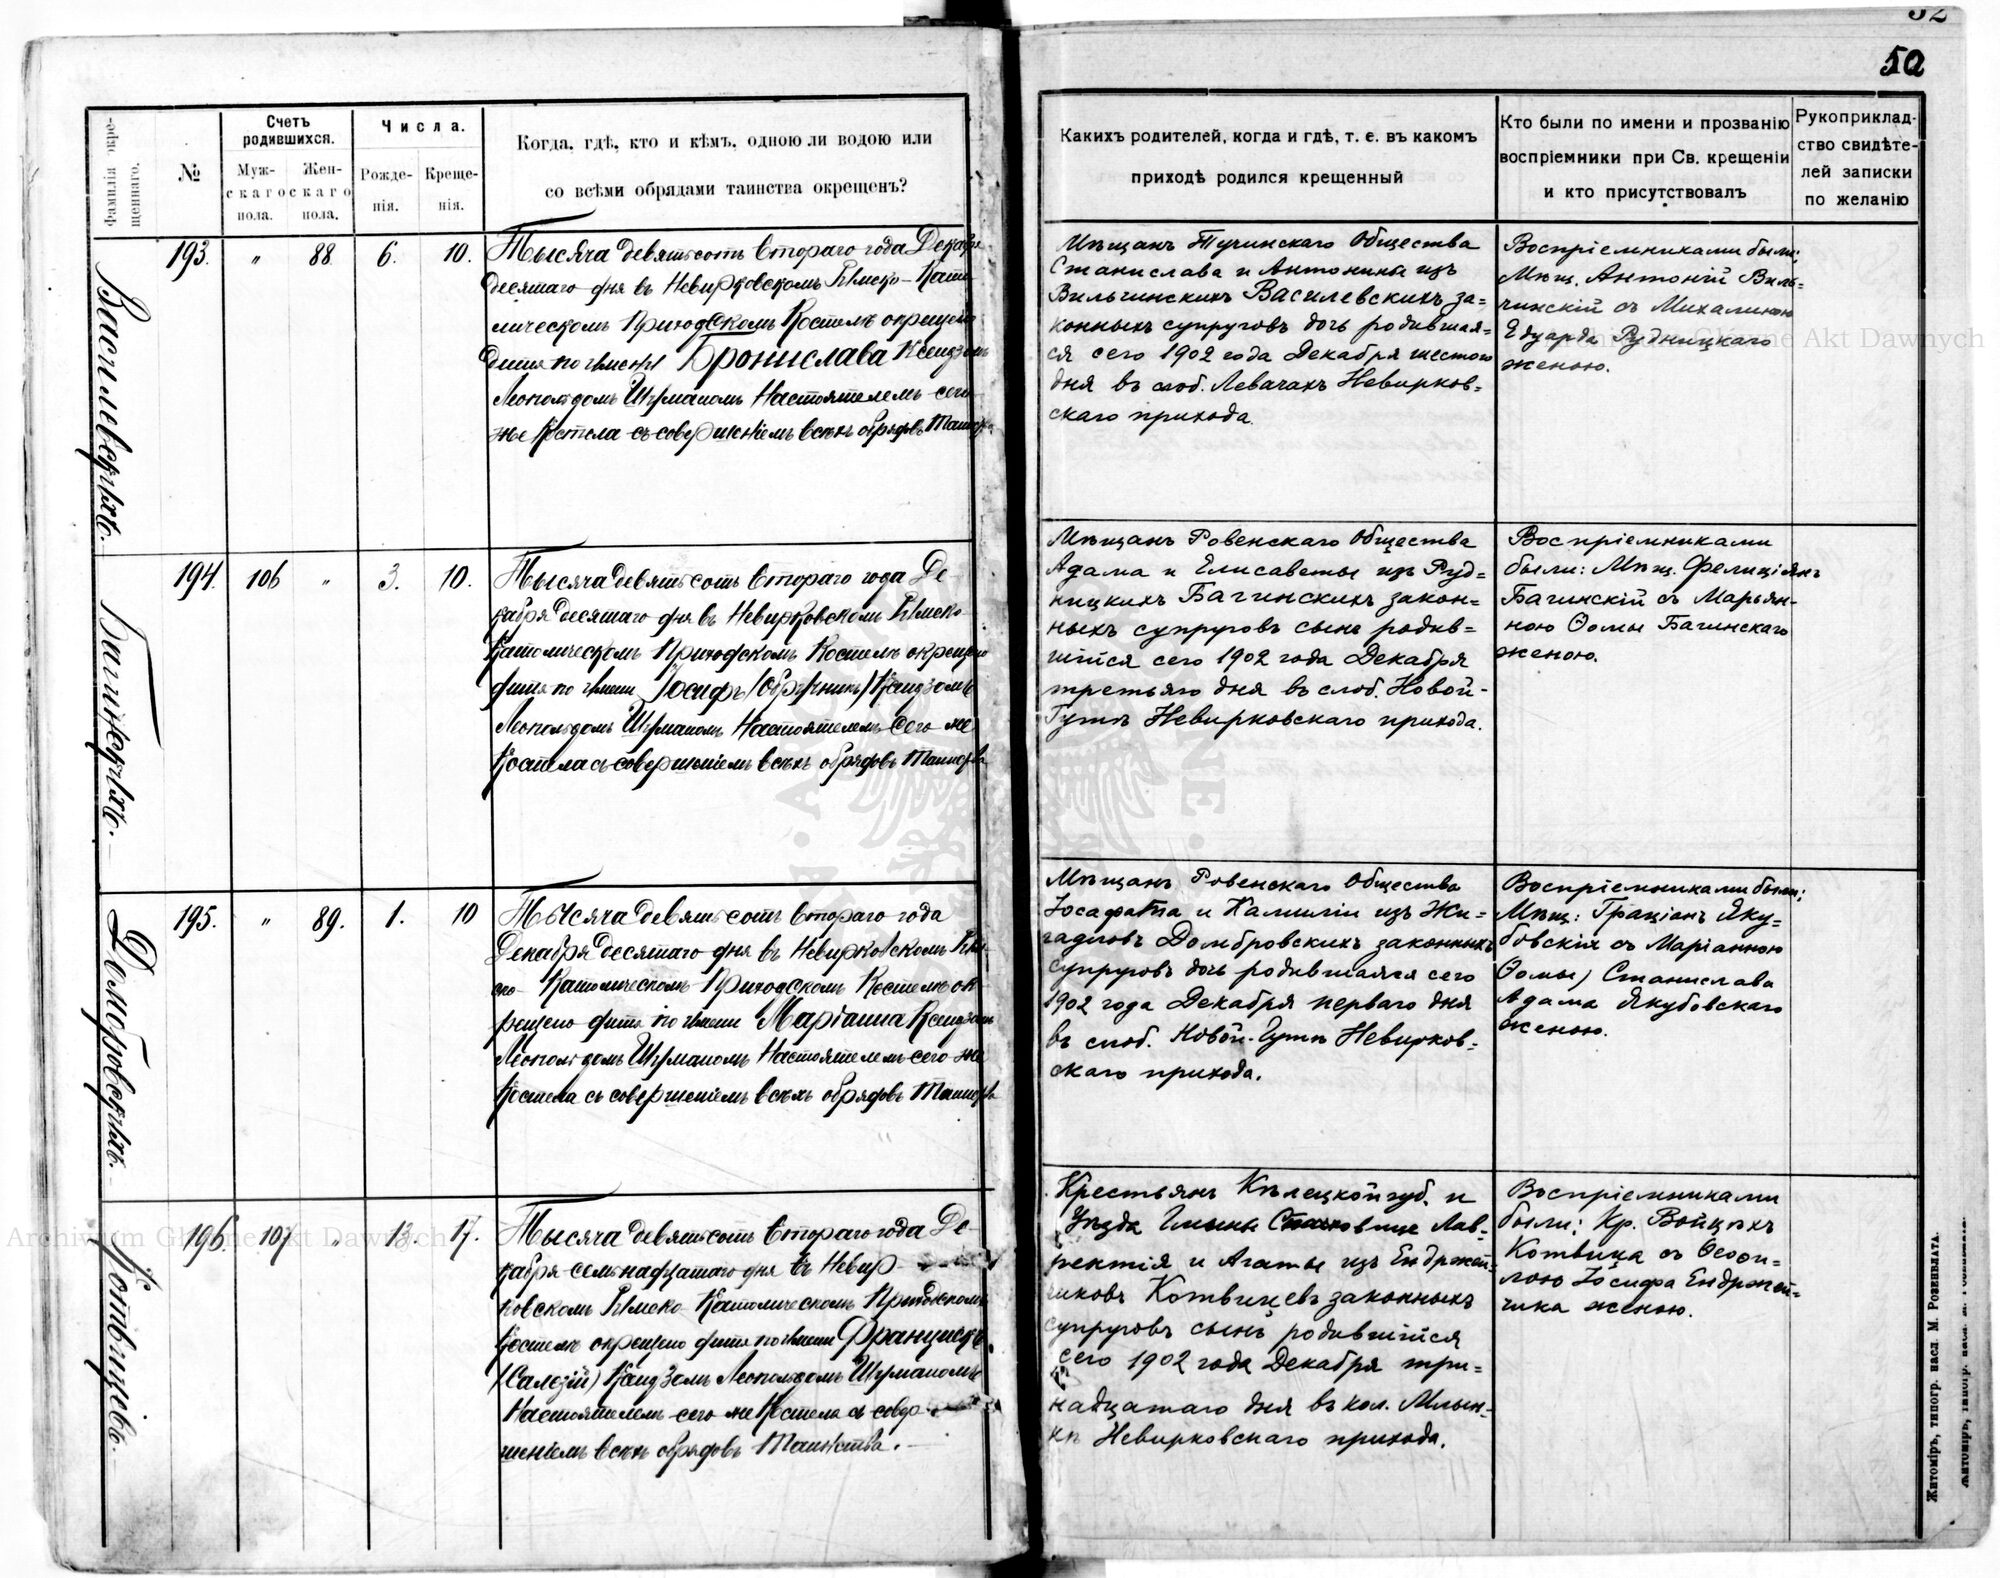 52
50
Фамилія окре-
щеннаго.
№
Счетъ
родившихся.
Муж-
скаго
пола.
Жен-
скаго
пола.
Числа.
Рожде-
нія.
Креще-
нія.
Когда, гдѣ, кто и кѣмъ, одною ли водою или
со всѣми обрядами таинства окрещенъ?
Какихъ родителей, когда и гдѣ, т. е. въ какомъ
приходѣ родился крещенный
Кто были по имени и прозванію
воспріемники при Св. крещеніи
и кто присутствовалъ
Рукоприклад-
ство свидѣте-
лей записки
по желанію
Василевскихъ.
193. " 88. 6. 10.
Тысяча девятьсотъ втораго года Декабря
десятаго дня въ Невирковскомъ Римско-Като-
лическомъ Приходскомъ Костелѣ окрещено
дитя по имени Бронислава Ксендзомъ
Леопольдомъ Шумапомъ Настоятелемъ сего-
же Костела съ совершеніемъ всѣхъ обрядовъ Таинства
Мѣщанъ Тучинскаго Общества
Станислава и Антонины изъ
Вильчинскихъ Василевскихъ за-
конныхъ супруговъ дочь родившая-
ся сего 1902 года Декабря шестого
дня въ слоб. Левачахъ Невирков-
скаго прихода.
Воспріемниками были:
Мѣщ. Антоній Виль-
чинскій съ Михалиною
Едуарда Рудницкаго
женою.
Багинскихъ.
194. 106 " 3. 10.
Тысяча девятьсотъ втораго года Де-
кабря десятаго дня въ Невирковскомъ Римско-
Католическомъ Приходскомъ Костелѣ окрещено
дитя по имени Іосифъ (Обручникъ) Ксендзомъ
Леопольдомъ Шумапомъ Настоятелемъ сего же
Костела съ совершеніемъ всѣхъ обрядовъ Таинства
Мѣщанъ Ровенскаго Общества
Адама и Елисаветы изъ Руд-
ницкихъ Багинскихъ закон-
ныхъ супруговъ сынъ родив-
шійся сего 1902 года Декабря
третьяго дня въ слоб. Новой-
Гутѣ Невирковскаго прихода.
Воспріемниками
были: Мѣщ. Фелиціянъ
Багинскій съ Марьян-
ною Ѳомы Багинскаго
женою.
Домбровскихъ.
195. " 89. 1. 10
Тысяча девятьсотъ втораго года
Декабря десятаго дня въ Невирковскомъ Рим-
ско-Католическомъ Приходскомъ Костелѣ ок-
рещено дитя по имени Маріанна Ксендзомъ
Леопольдомъ Шумапомъ Настоятелемъ сего же
Костела съ совершеніемъ всѣхъ обрядовъ Таинства
Мѣщанъ Ровенскаго Общества
Іосафата и Камиліи изъ Жи-
гадловъ Домбровскихъ законныхъ
супруговъ дочь родившаяся сего
1902 года Декабря перваго дня
въ слоб. Новой-Гутѣ Невирков-
скаго прихода.
Воспріемниками были:
Мѣщ: Граціанъ Яку-
бовскій съ Маріанною
Ѳомы) Станислава
Адама Якубовскаго
женою.
Котвицевъ.
196. 107 " 13. 17.
Тысяча девятьсотъ втораго года Де-
кабря семнадцатаго дня въ Невир-
ковскомъ Римско-Католическомъ Приходскомъ
Костелѣ окрещено дитя по имени Францискъ
(Салезій) Ксендзомъ Леопольдомъ Шумапомъ
Настоятелемъ сего же Костела съ совер-
шеніемъ всѣхъ обрядовъ Таинства.
Крестьянъ Кѣлецкой губ. и
Уѣзда Гмины Лав-
рентія и Агаты изъ Ендржей-
чиковъ Котвицевъ законныхъ
супруговъ сынъ родившійся
сего 1902 года Декабря три-
надцатаго дня въ кол. Млын-
кѣ Невирковскаго прихода.
Воспріемниками
были: Кр. Войцѣхъ
Котвица съ Ѳеофи-
лою Іосифа Ендржей-
чика женою.
Житоміръ, типогр. насл. М. Розенблата.
Archiwum Główne Akt Dawnych
Archiwum Główne Akt Dawnych